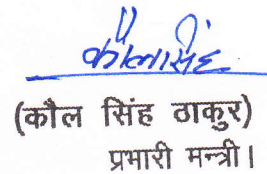 कौलसिंह
(कौल सिंह ठाकुर)
प्रभारी मन्त्री।